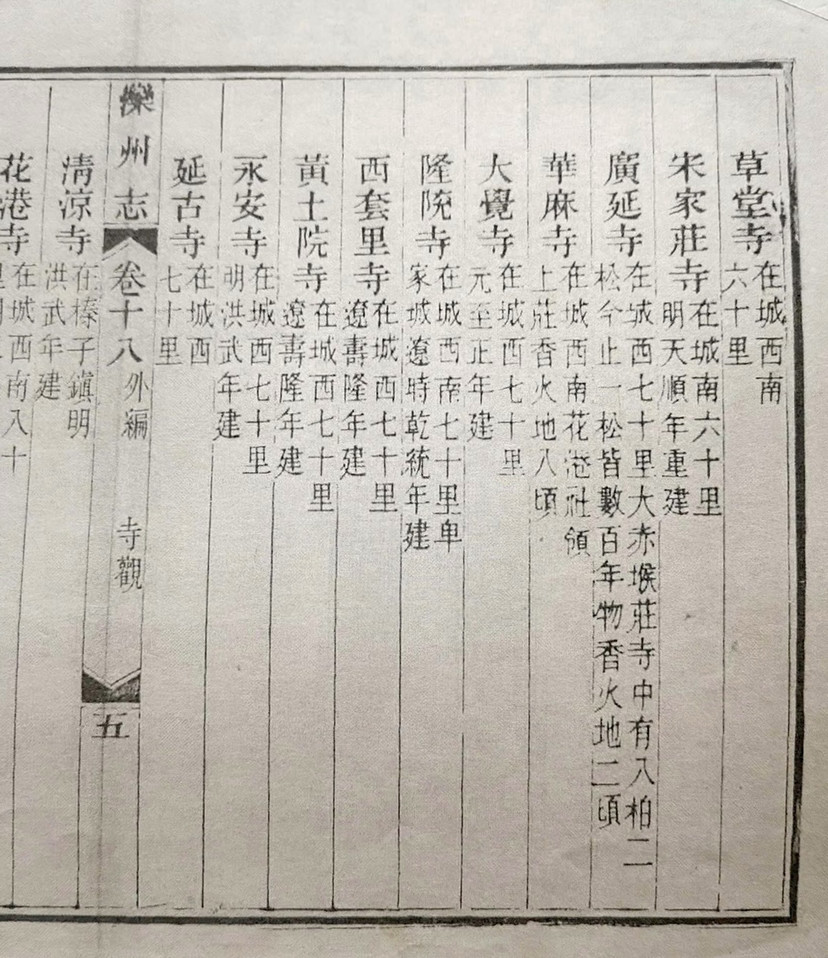 草堂寺在城西南
六十里
宋家莊寺在城南六十里
明天順年重建
廣延寺在城西七十里大赤堠莊寺中有八柏二
松今止一松皆數百年物香火地二頃
華麻寺在城西南花港社領
上莊香火地八頃
大覺寺在城西七十里
元至正年建
隆院寺在城西南七十里单
家城遼時乾統年建
西套里寺在城西七十里
遼壽隆年建
黃土院寺在城西七十里
遼壽隆年建
永安寺在城西七十里
明洪武年建
延古寺在城西
七十里
灤州志 卷十八 外編 寺觀 五
清涼寺在榛子鎮明
洪武年建
花港寺在城西南八十